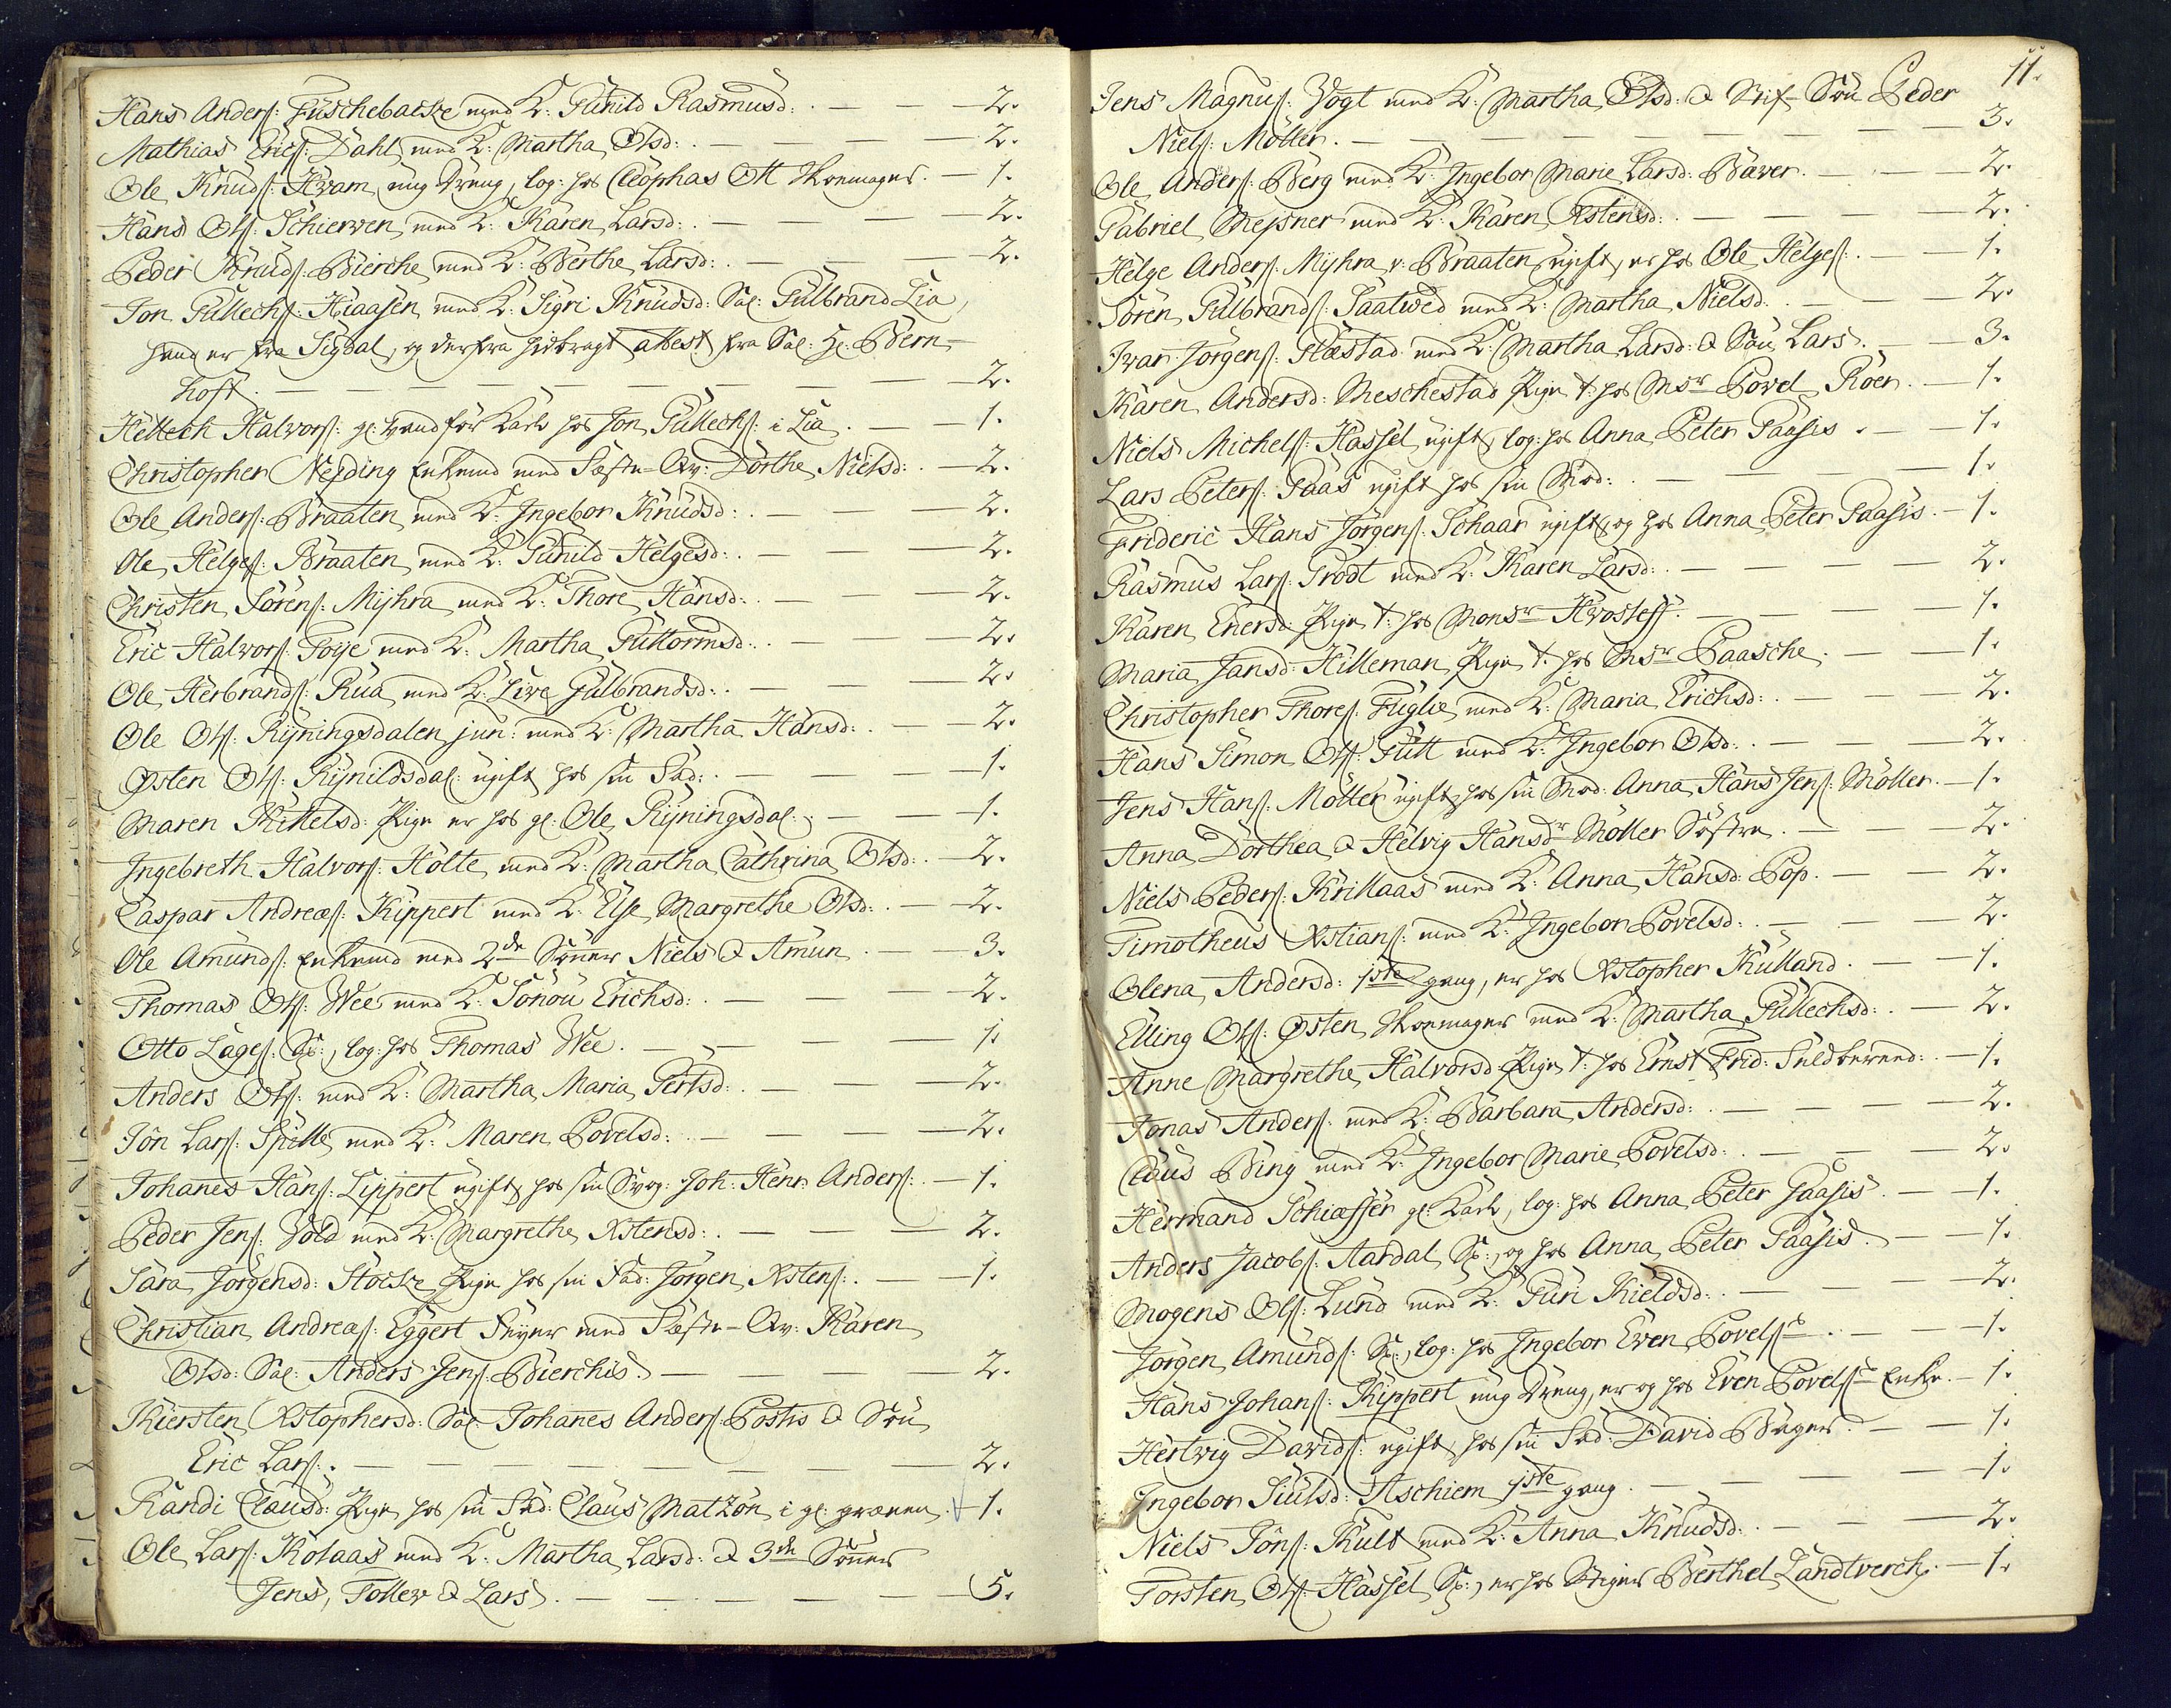 Hans Anders: Fuschebacke med K: Gunild Rasmusd: . — — 2.
Mathias Erics: Dahl med K: Martha Olsd: . — — — 2.
Ole Knuds: Hvam, ung dreng, log: hos Cleophas Ott Skoemager. — 1.
Hans Ols: Schierven med K: Karen Larsd: . — — — 2.
Peder Knuds: Bierche med K: Berthe Larsd: . — — — 2.
Jon Gullechs: Hiaasen med K: Sigri Knudsd: Sal: Gulbrand Lia,
hand er fra Sigdal, og derfra hidbragt attest fra Sal: Hr: Bern-
hoft. — — — — — — — — 2.
Hellech Halvors: gl: vandför Karl hos Jon Gullechs: i Lia. — — 1.
Christopher Neyding Enkemd med Fæste-Qv: Dorthe Nielsd: . — 2.
Ole Anders: Braaten med K: Ingebor Knudsd: . — — — 2.
Ole Helges: Braaten med K: Gunild Helgesd: . — — — 2.
Christen Sörens: Myhra med K: Thore Hansd: . — — — 2.
Eric Halvors: Foyje med K: Martha Guttormsd: . — — 2.
Ole Herbrands: Rua med K: Live Gulbrandsd: . — — — 2.
Ole Ols: Ryningsdalen jun: med K: Martha Hansd: . — — 2.
Østen Ols: Rynildsdal: ugift hos sin Fad: . — — — 1.
Maren Kittelsd: Pige er hos gl: Ole Ryningsdal: . — — 1.
Ingebreth Halvors: Holte med K: Martha Cathrina Olsd: . — 2.
Caspar Andreæs: Kippert med K: Else Margrethe Olsd: . — 2.
Ole Amunds: Enkemd med 2de Sönner Niels & Amun. — — 3.
Thomas Ols: Wee med K: Sönou Erichsd: . — — — 2.
Otto Lages: Sv:, log: hos Thomas Wee. — — — — 1.
Anders Ols: med K: Martha Maria Gertsd: . — — — 2.
Jön Lars: Spitte med K: Maren Povelsd: . — — — 2.
Johanes Hans: Lippert ugift, hos sin Svog: Joh: Henr: Anders: . — 1.
Peder Jens: Vold med K: Margrethe Xstensd: . — — — 2.
Sara Jörgensd: Stocke Pige hos sin Fad: Jörgen Xstens: . — — 1.
Christian Andreas: Eggert Steyer med Fæste-Qv: Karen
Olsd: Sal: Anders Jens: Bierchis. — — — — 2.
Kiersten Xstophersd: Sal: Johanes Anders: Postis & Sön
Eric Lars: . — — — — — — — 2.
Randi Clausd: Pige hos sin Fad: Claus Matzön i gl: grænen. — 1.
Ole Lars: Kolaas med K: Martha Larsd: & 3de Sönner
Jens, Tollev & Lars. — — — — — 5.
11.
Jens Magnus: Vogt med K: Martha Olsd: & Stif-Sön Peder
Niels: Möller. — — — — — — — 3.
Ole Anders: Berg med K: Ingebor Marie Larsd: Bæver. — — 2.
Gabriel Messner med K: Karen Xstensd: . — — — 2.
Helge Anders: Myhra v: Braaten, ugift, er hos Ole Helges: . — 1.
Sören Gulbrands: Saatved med K: Martha Nielsd. — — 2.
Ivar Jörgens: Flæstad med K: Martha Larsd: & Sön Lars. — 3.
Karen Andersd: Meschestad Pige t: hos Msr Povel Röer. — 1.
Niels Michels: Hassel, ugift, log: hos Anna Peter Gaasis. — 1.
Lars Peters: Gaas ugift hos sin Mod: . — — — — 1.
Frideric Hans Jörgens: Schaar ugift, og hos Anna Peter Gaasis. — 1.
Rasmus Lars: Trodt med K: Karen Larsd: . — — — 2.
Karen Enersd: Pige t: hos Monsr Hvosleff. — — — 1.
Maria Jansd: Hilleman Pige t: hos Msr Paasche. — — 1.
Christopher Thores: Fuglie med K: Maria Erichsd: . — — 2.
Hans Simon Ols: Gutt med K: Ingebor Olsd: . — — — 2.
Jens Hans: Möller ugift, hos sin Mod: Anna Hans Jens: Möller. — 1.
Anna Dorthea & Helvig Hansdr Möller Söstre. — — 2.
Niels Peders: Krillaas med K: Anna Hansd: Pop. — — 2.
Timotheus Xstians: med K: Ingebor Povelsd: . — — — 2.
Olena Andersd: 1ste gang, er hos Xstopher Kulland. — — 1.
Elling Ols: Østen Skoemager med K: Martha Gullechsd: . — 2.
Anne Margrethe Halvorsd: Pige t: hos Ernst Frid: . — 1.
Jonas Anders: med K: Barbara Andersd: . — — — 2.
Claus Bing med K: Ingebor Marie Povelsd: . — — — 2.
Hermand Schiæsser gl: Karl, log: hos Anna Peter Gaasis. — 1.
Anders Jacobs: Aardal Sv:, og hos Anna Peter Gaasis. — — 1.
Mogens Ols: Lund med K: Guri Kieldsd: . — — — 2.
Jörgen Amunds: Sv:, log: hos Ingebor Even Povelss. — — 1.
Hans Johans: Kippert ung dreng, er og hos Even Povelss Enke. — 1.
Hertvig Davids: ugift, hos sin Fad: David Bager. — — 1.
Ingebor Siulsd: Aschiem 1ste gang. — — — — 1.
Niels Jöns: Kult med K: Anna Knudsd: . — — — 2.
Torsten Ols: Hassel Sv:, er hos Stiger Berthel Landtverch. — 1.